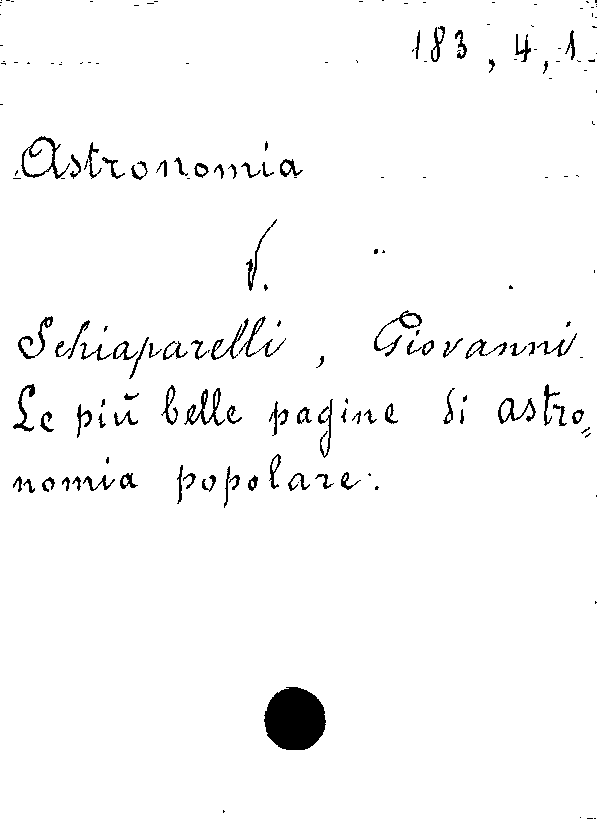 183, 4, 1
Astronomia
V.
Schiaparelli, Giovanni
Le più belle pagine di astro=
nomia popolare.